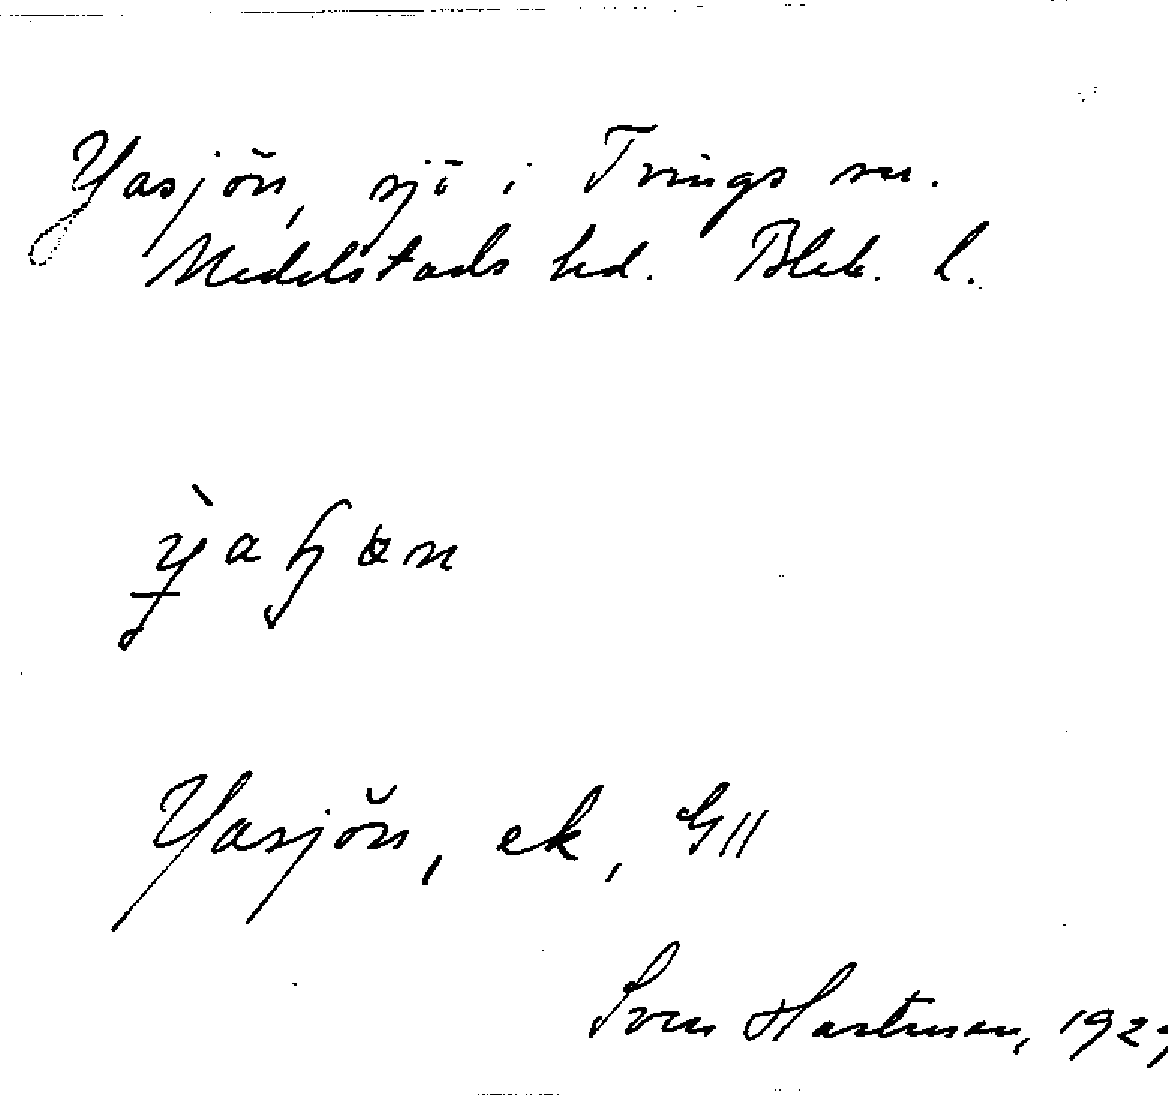 Yasjön, sjö i Tvings sn.
Medelstads hd. Blek. l.
Yasjön, ek, G11
Sven Hartman, 192